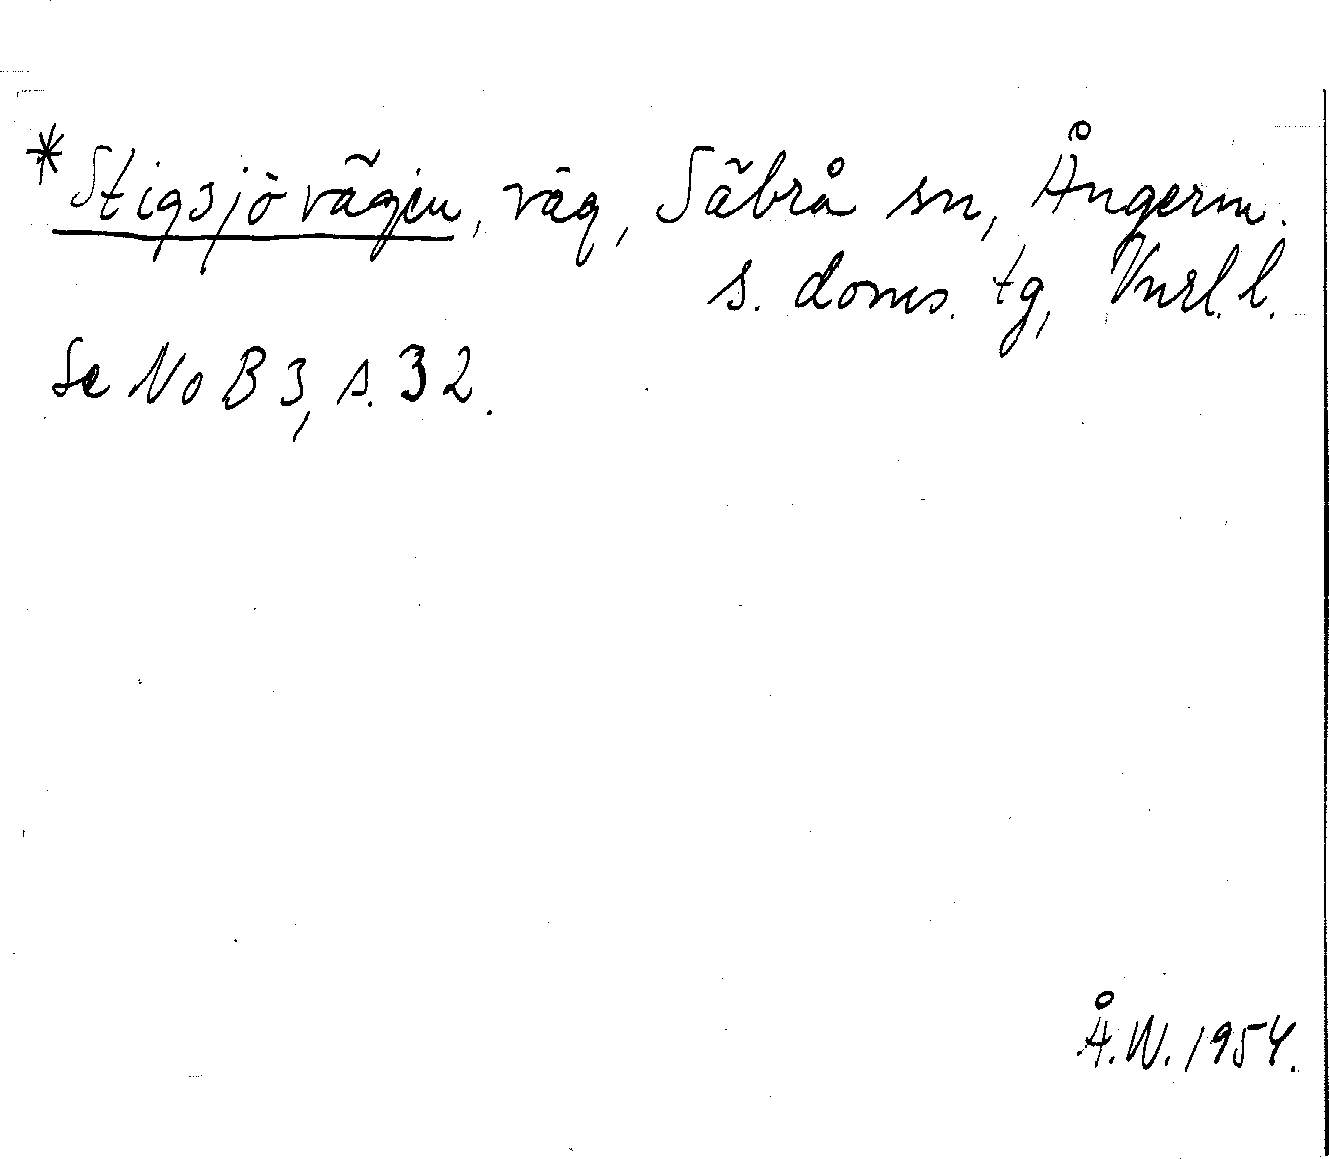 *Stigsjövägen, väg, Säbrå sn, Ångerm.
s. doms. tg, Vnrl. l.
Se NoB 3, s. 32.
Å.W. 1954.